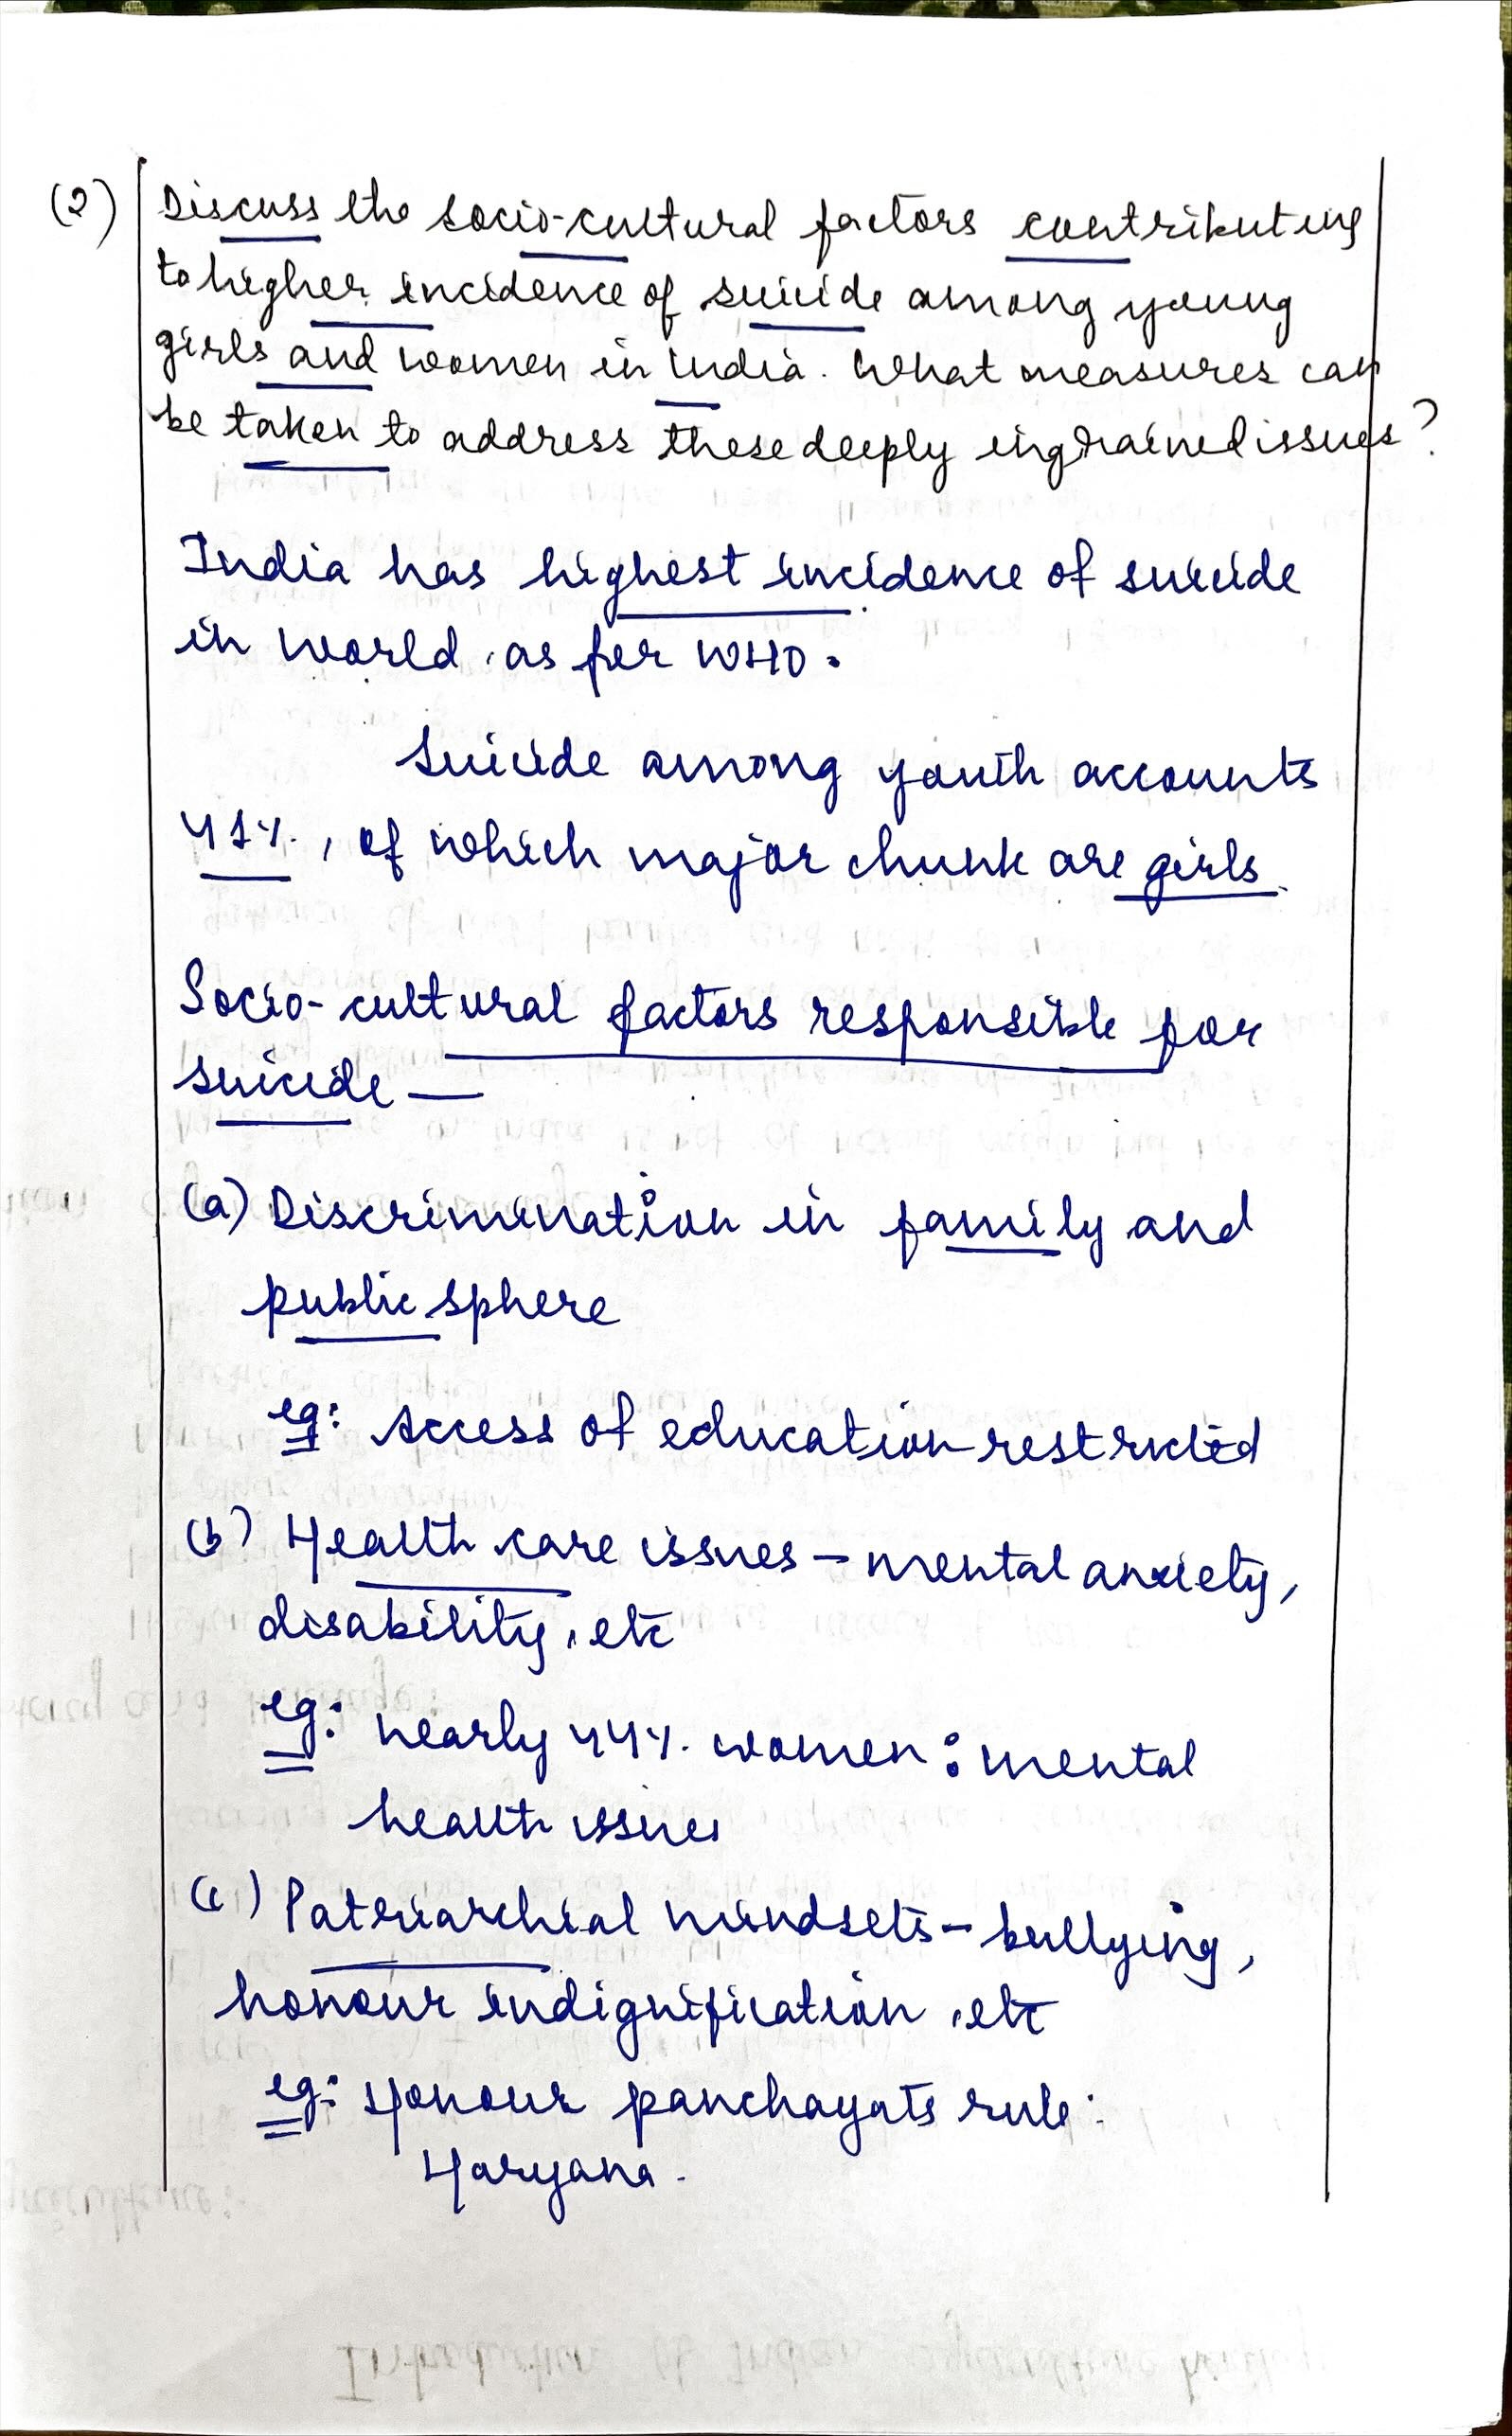 (2) Discuss the socio-cultural factors contributing
to higher incidence of suicide among young
girls and women in India. What measures can
be taken to address these deeply ingrained issues?
India has highest incidence of suicide
in world, as per WHO.
Suicide among youth accounts
41%, of which major chunk are girls.
Socio-cultural factors responsible for
suicide —
(a) Discrimination in family and
public sphere
eg: Access of education restricted
(b) Health care issues - mental anxiety,
disability, etc
eg: nearly 44% women : mental
health issues
(c) Patriarchial mindsets - bullying,
honour indignification, etc
eg: Honour panchayats rule:
Haryana.